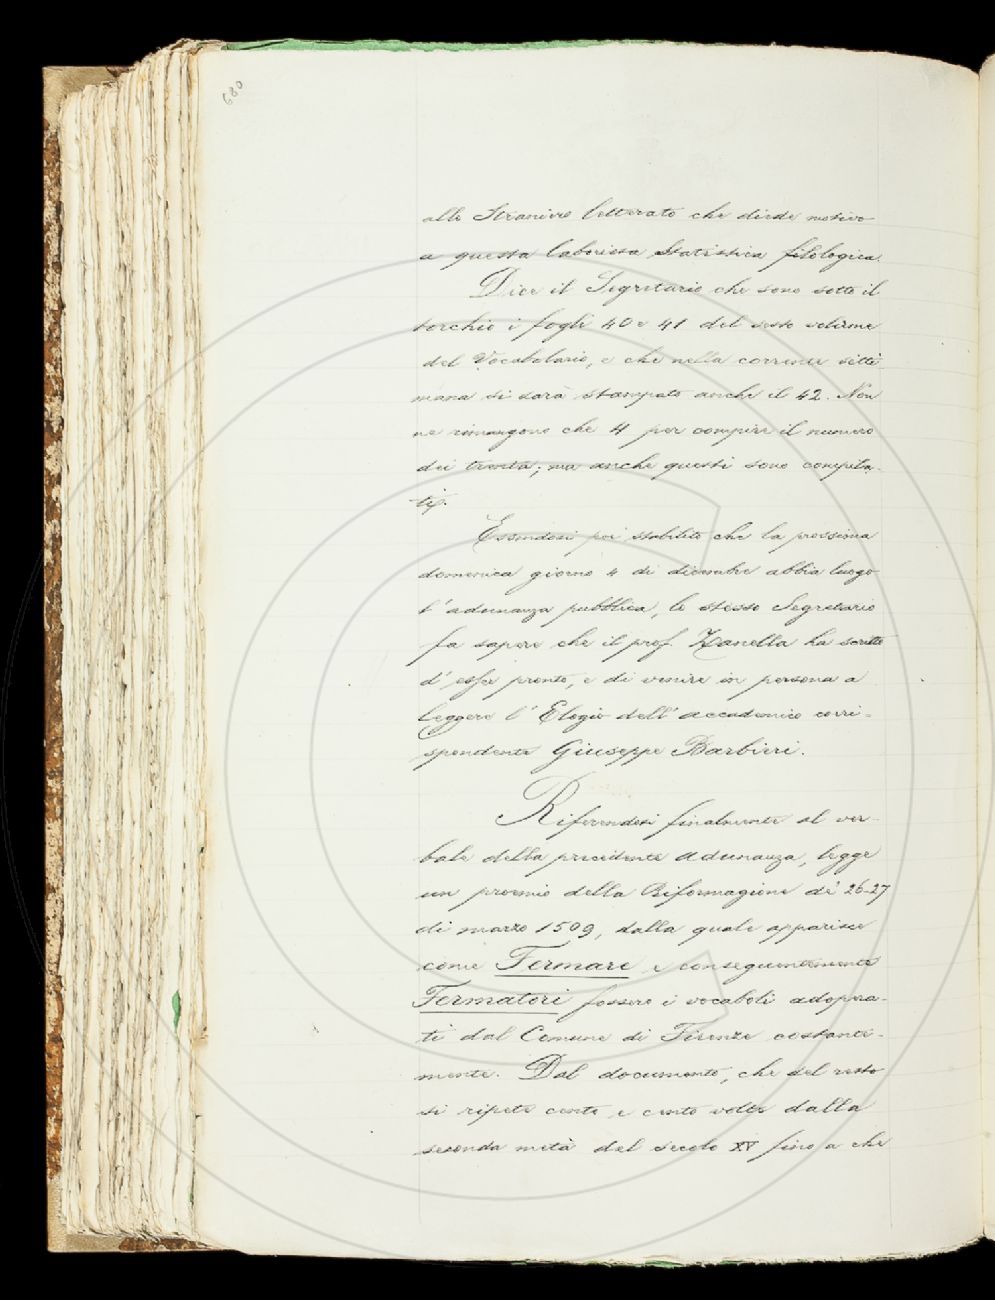 680
allo Straniero letterato che diede motivo
a questa laboriosa Statistica filologica.
Dice il Segretario che sono sotto il
torchio i fogli 40 e 41 del sesto volume
del Vocabolario, e che nella corrente setti-
mana si sarà stampato anche il 42. Non
ne rimangono che 4 per compire il numero
dei trenta; ma anche questi sono compila-
ti.
Essendosi poi stabilito che la prossima
domenica giorno 4 di dicembre abbia luogo
l'adunanza pubblica, lo stesso Segretario
fa sapere che il prof. Zanella ha scritto
d'esser pronto, e di venire in persona a
leggere l'Elogio dell'accademico corri-
spondente Giuseppe Barbieri.
Riferendosi finalmente al ver-
bale della precedente adunanza, legge
un proemio della Riformagione de' 26-27
di marzo 1509, dalla quale apparisce
come Fermare e conseguentemente
Fermatori fossero i vocaboli adopera-
ti dal Comune di Firenze costante-
mente. Dal documento, che del resto
si ripete cento e cento volte dalla
seconda metà del secolo XV fino a che